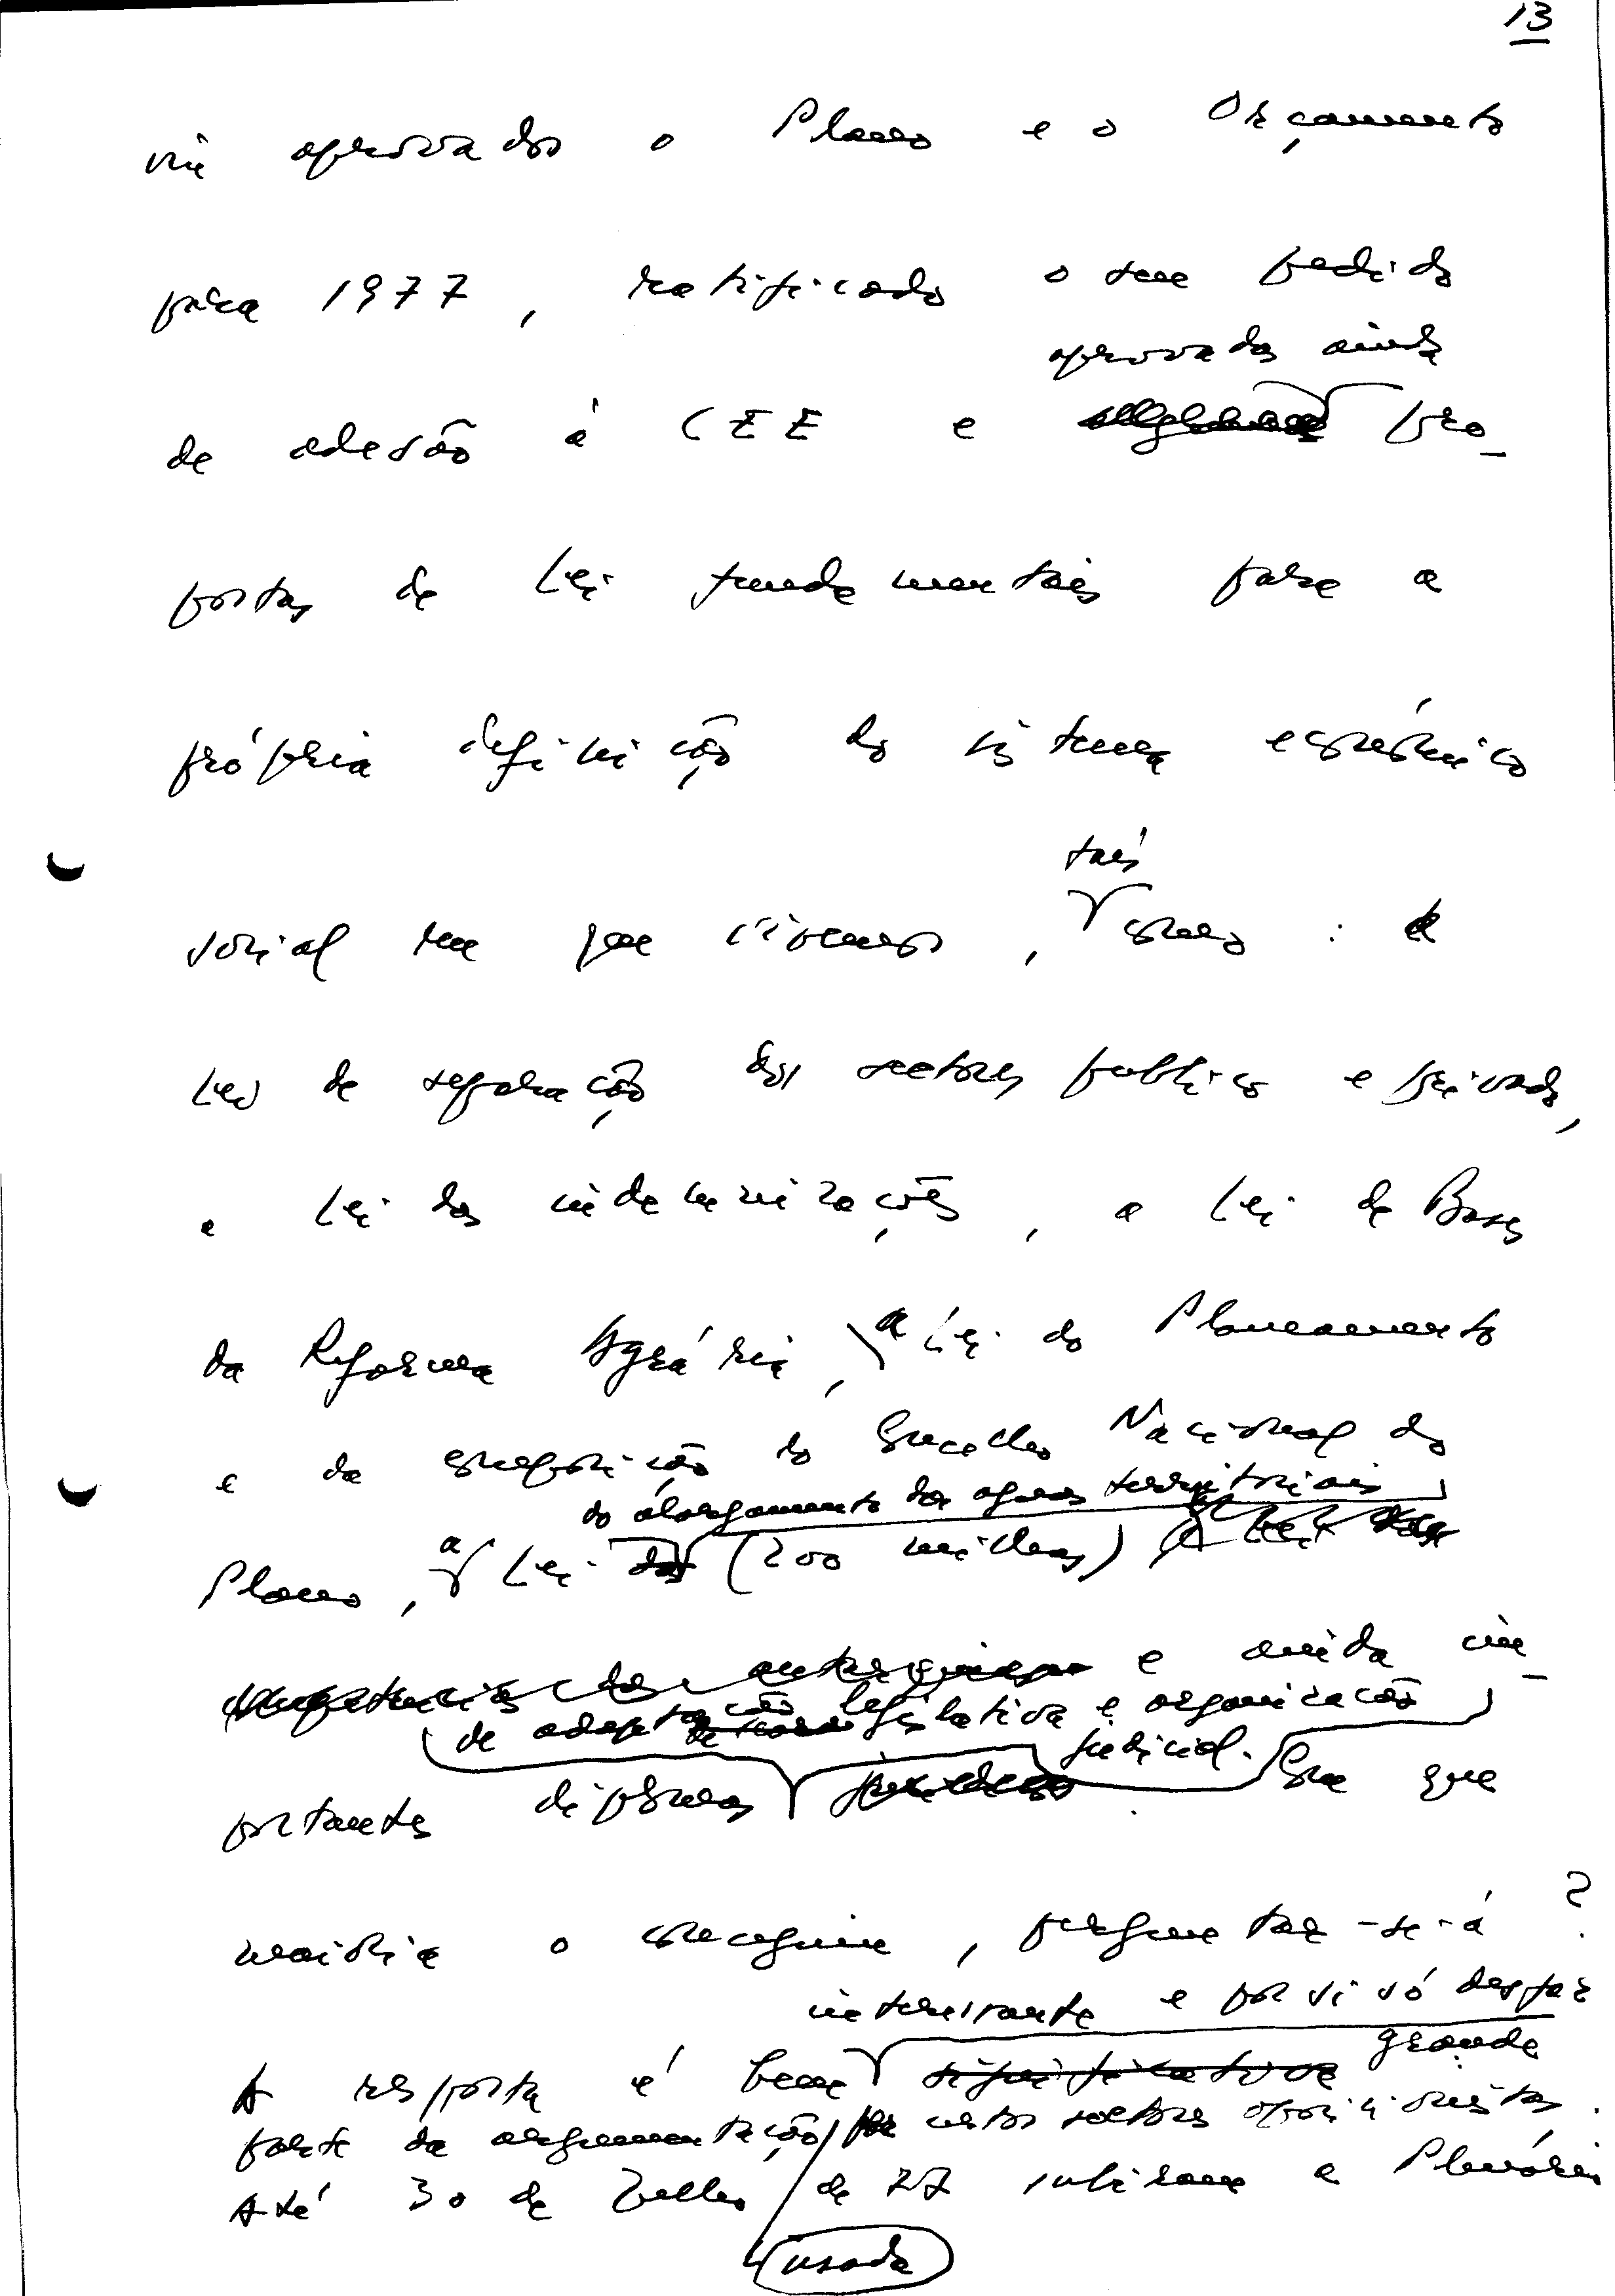 13
viu aprovados o Plano e o Orçamento
para 1977, ratificado o seu pedido
aprovadas ainda
de adesão à CEE e pro-
postas de Lei fundamentais para a
própria definição do sistema económico
tais
social em que vivemos, como : a
Lei de separação dos sectores publico e privado,
a Lei das indemnizações, a Lei de Bases
da Reforma Agrária, a Lei do Planeamento
e da composição do Conselho Nacional do
do alargamento das aguas territoriais
Plano, a Lei (200 milhas)
e ainda im-
de adaptação legislativa e organização
judicial.
portantes diplomas . Com que
maioria o conseguiu, perguntar-se-á ?
interessante e por si só desfaz
grande
A resposta é bem
parte da argumentação de certos sectores oposicionistas.
Até 30 de Julho de 77 subiram a Plenário
usada